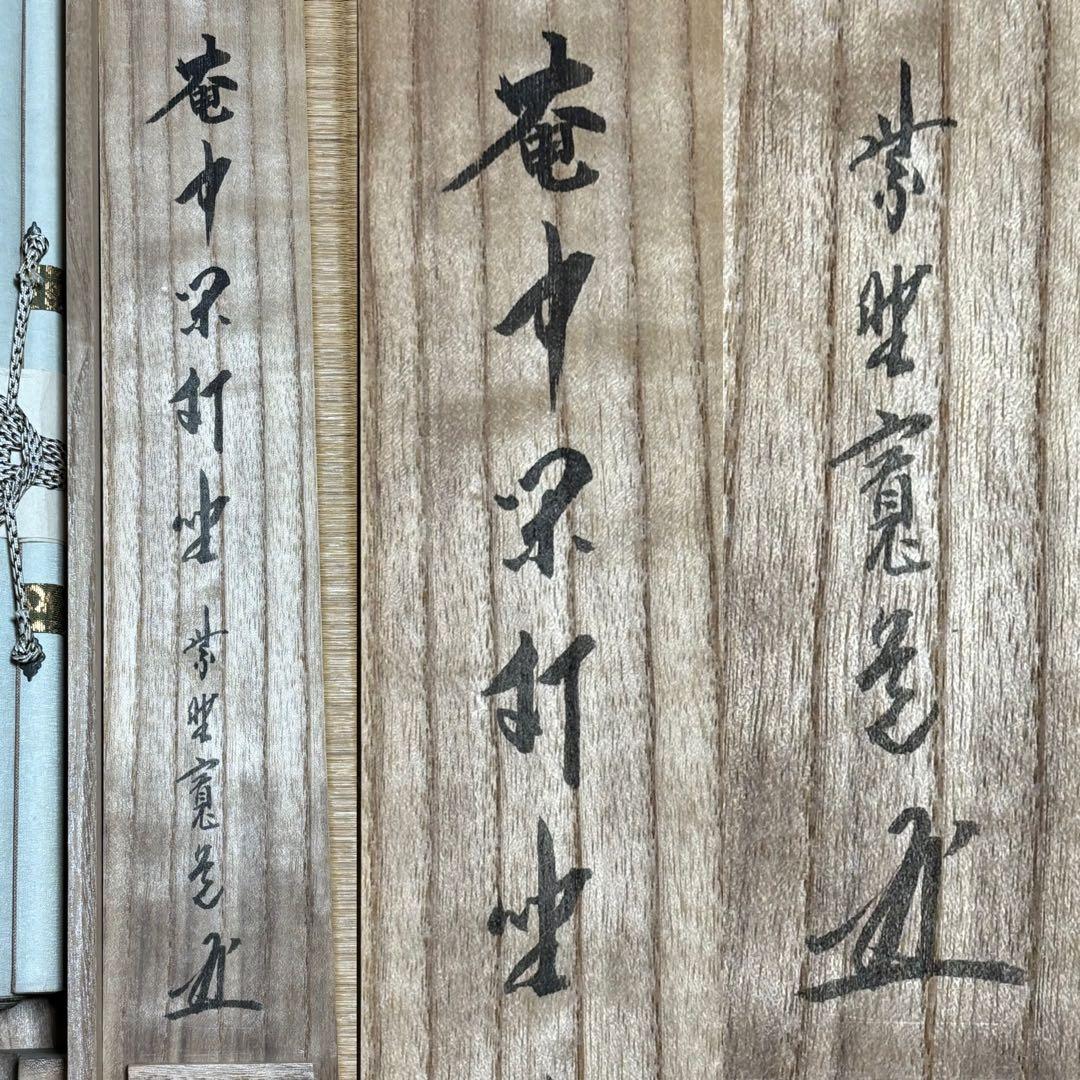 庵中閑打坐 紫野寛道
庵中閑打坐
紫野寛道